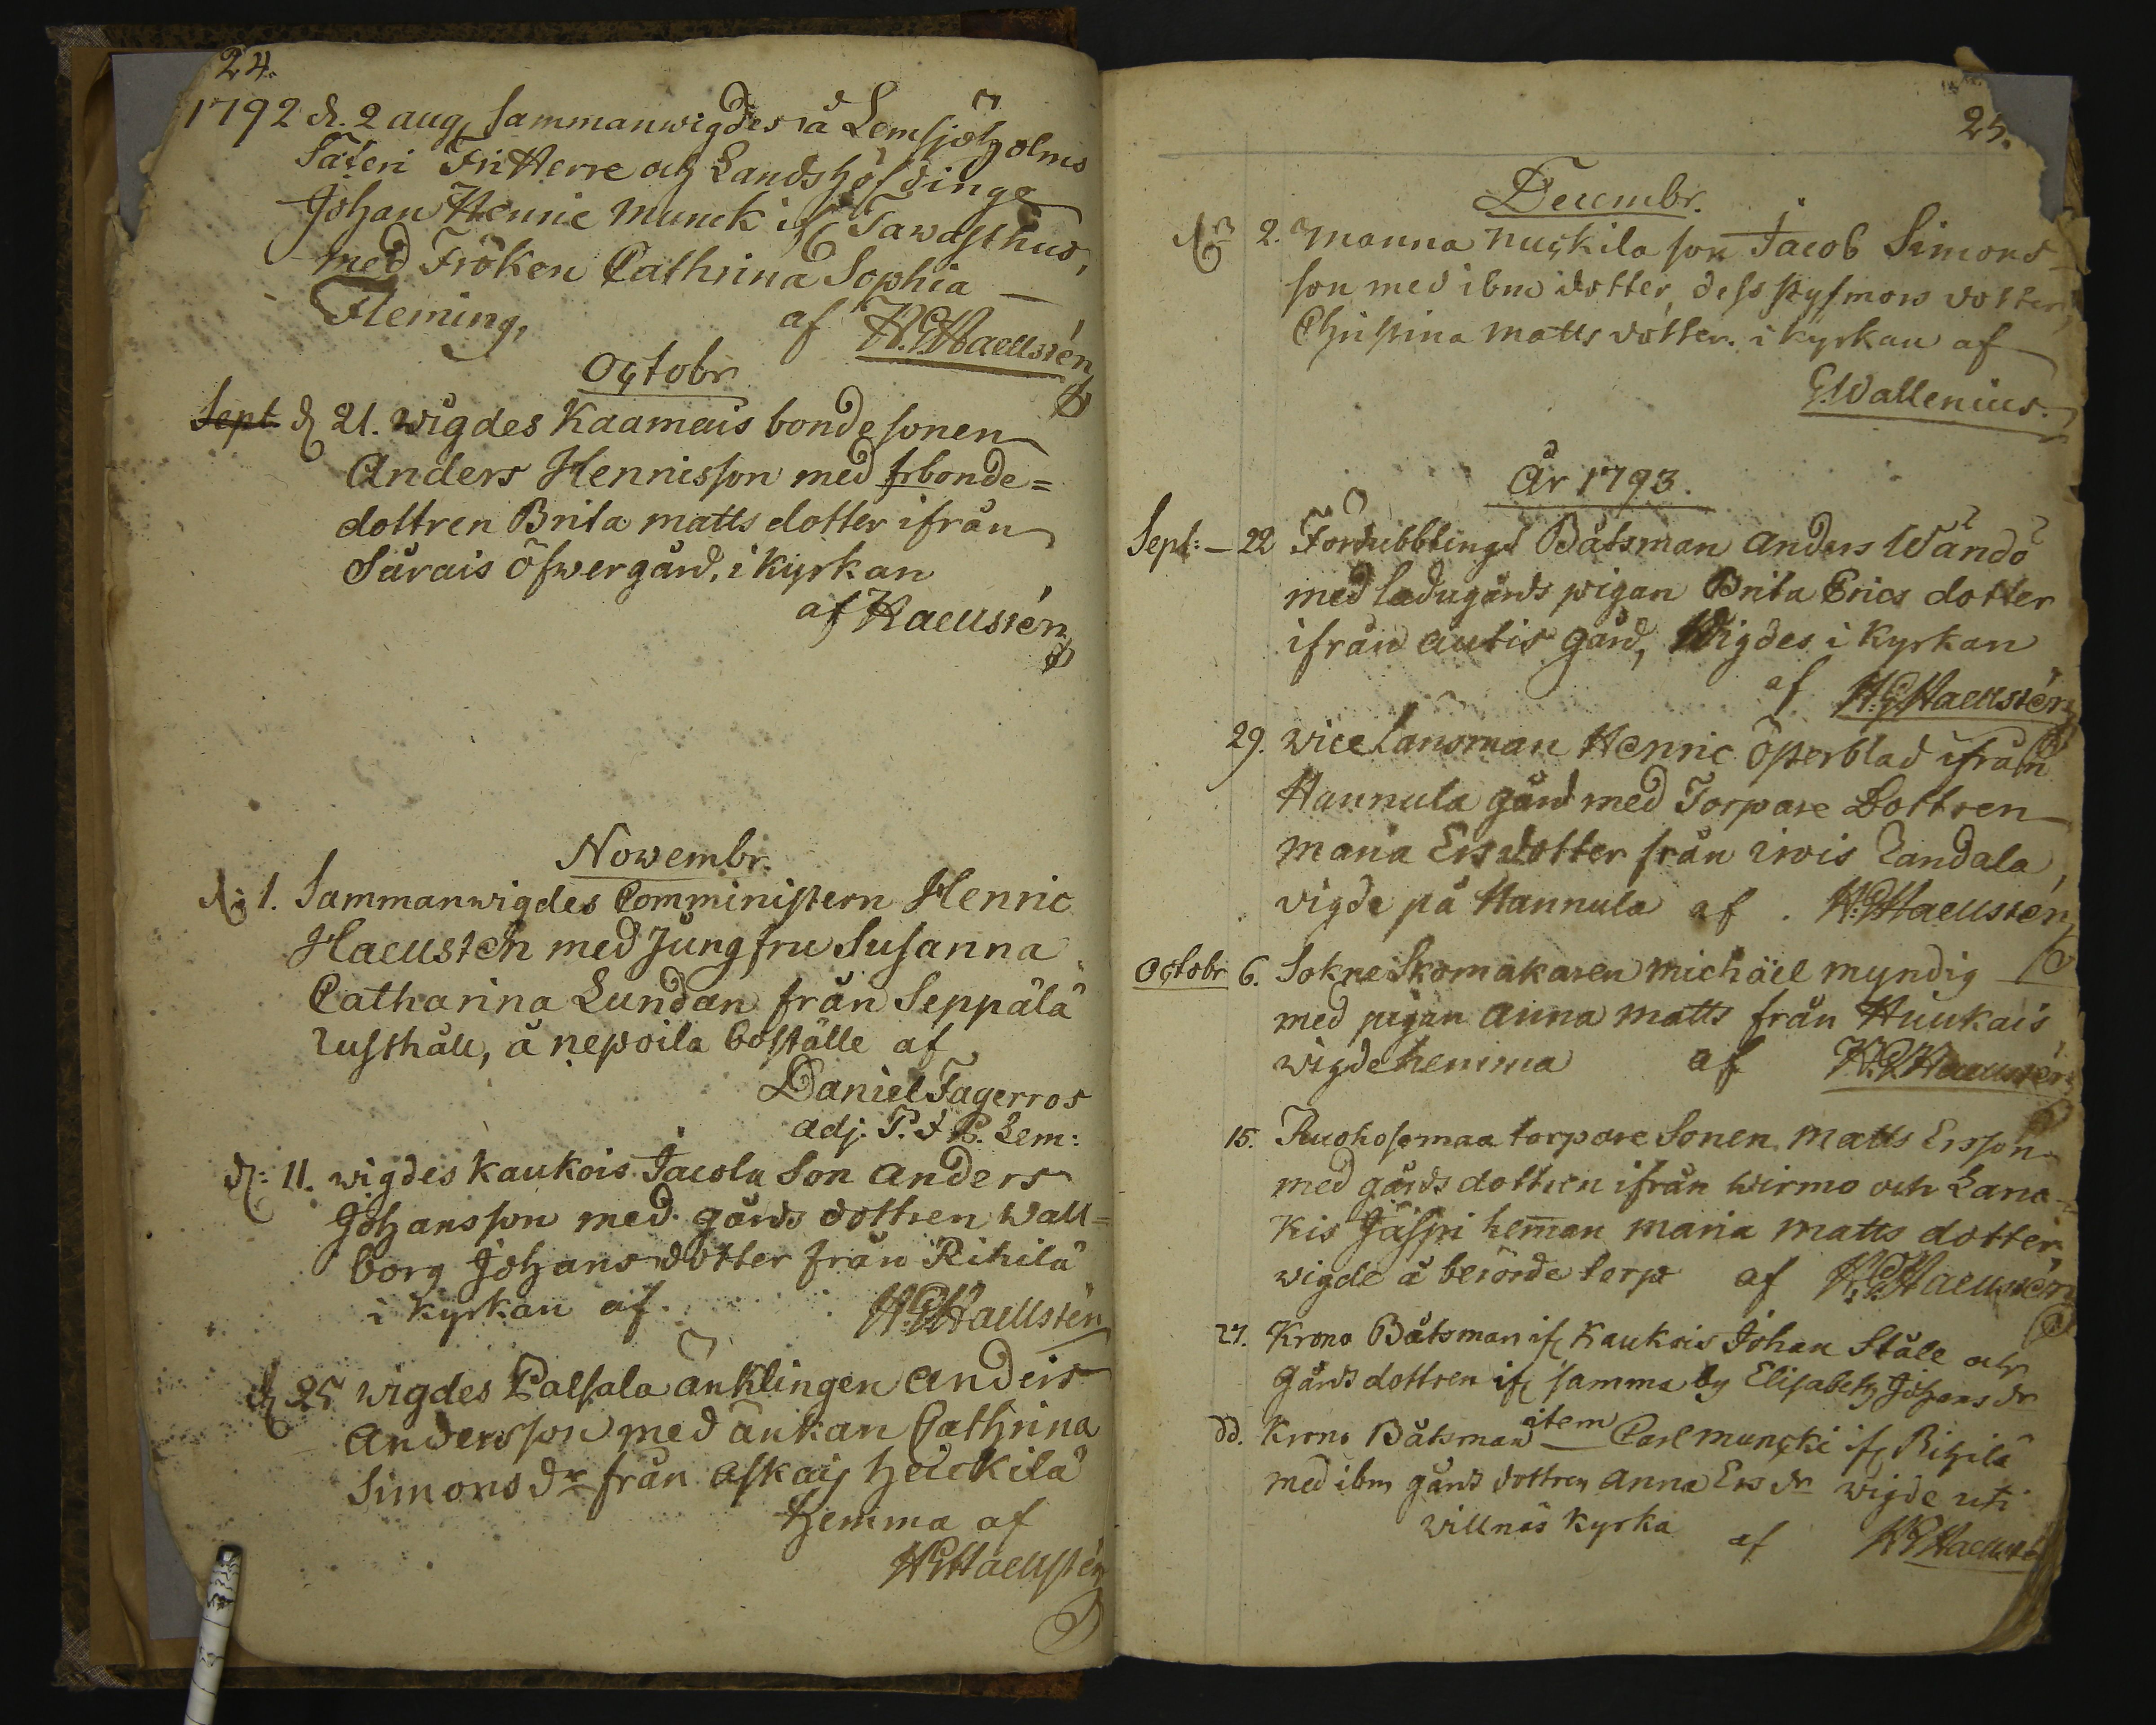 24.
1792 d. 2 aug, sammanwigdes å Lemsjöholms
Säteri Friherre och Landshöfdinge
Johan Henric Munck if. Tawasthus,
med Fröken Cathrina Sophia
Fleming, af H.G.Haellstén
Octobr
Sept. d 21. wigdes Kaamais bonde sonen
Anders Hennisson med frbonde=
dottren Brita matts dotter ifrån
Särais öfwergård, i kyrkan
af Haellstén
Nowembr.
d. 1. Sammanwigdes Comministern Henric
Haellstén med Jungfru Susanna
Catharina Lundan från Seppälä
rusthåll, å nepoila boställe af
Daniel Fagerros
adj. P. Lem:
d: 11. wigdes Kaukois Jacola Son Anders
Johansson med gårds dottren Wall=
borg Johans dotter från Rihilä
i kyrkan af H.G.Haellstén
d 25 wigdes Palsala änklingen Anders
Andersson med änkan Cathrina
Simons dr från Askais heickilä
hemma af
H.G.Haellstén
25.
Decembr.
dn 2. Manna nuckila son Jacob Simons
son med ibm dotter, dess styfmors dotter,
Christina Matts dotter. i kyrkan af
G.Wallenius.
År 1793.
Sept: – 22 Fördubblings Båtsman Anders Wändö
med ladugårds pigan Brita Erics dotter
ifrån autis gård, Wigdes i kyrkan
af H.G.Haellstén
29. vice Lansman Henric Österblad ifrån
Hannula gård med Torpare Dottren
Maria Ersdotter från irois Landala,
vigde på Hannula af. H.G.Haellstén
Octobr 6. Sokne Skomakaren Michäel myndig
med pigan Anna Matts från Huukais
wigde hemma af H.G.Haellstén
15. Ruohosomaa torpare Sonen Matts Ersson
med gårds dottren ifrån Wirmo och Lana-
kis Jäspi hemman Maria Matts dotter
wigde å berörde torp af H.G.Haellstén
27. Krono Båtsman if. Kaukois Johan Ståle och
Gårds dottren if. samma by Elisabeth Johans dr
dd. Krono Båtsman item Carl Muncki if. Rihilä
med ibm gårds dottren Anna Ers dr wigde uti
Willnäs kyrka af H.G.Haellstén